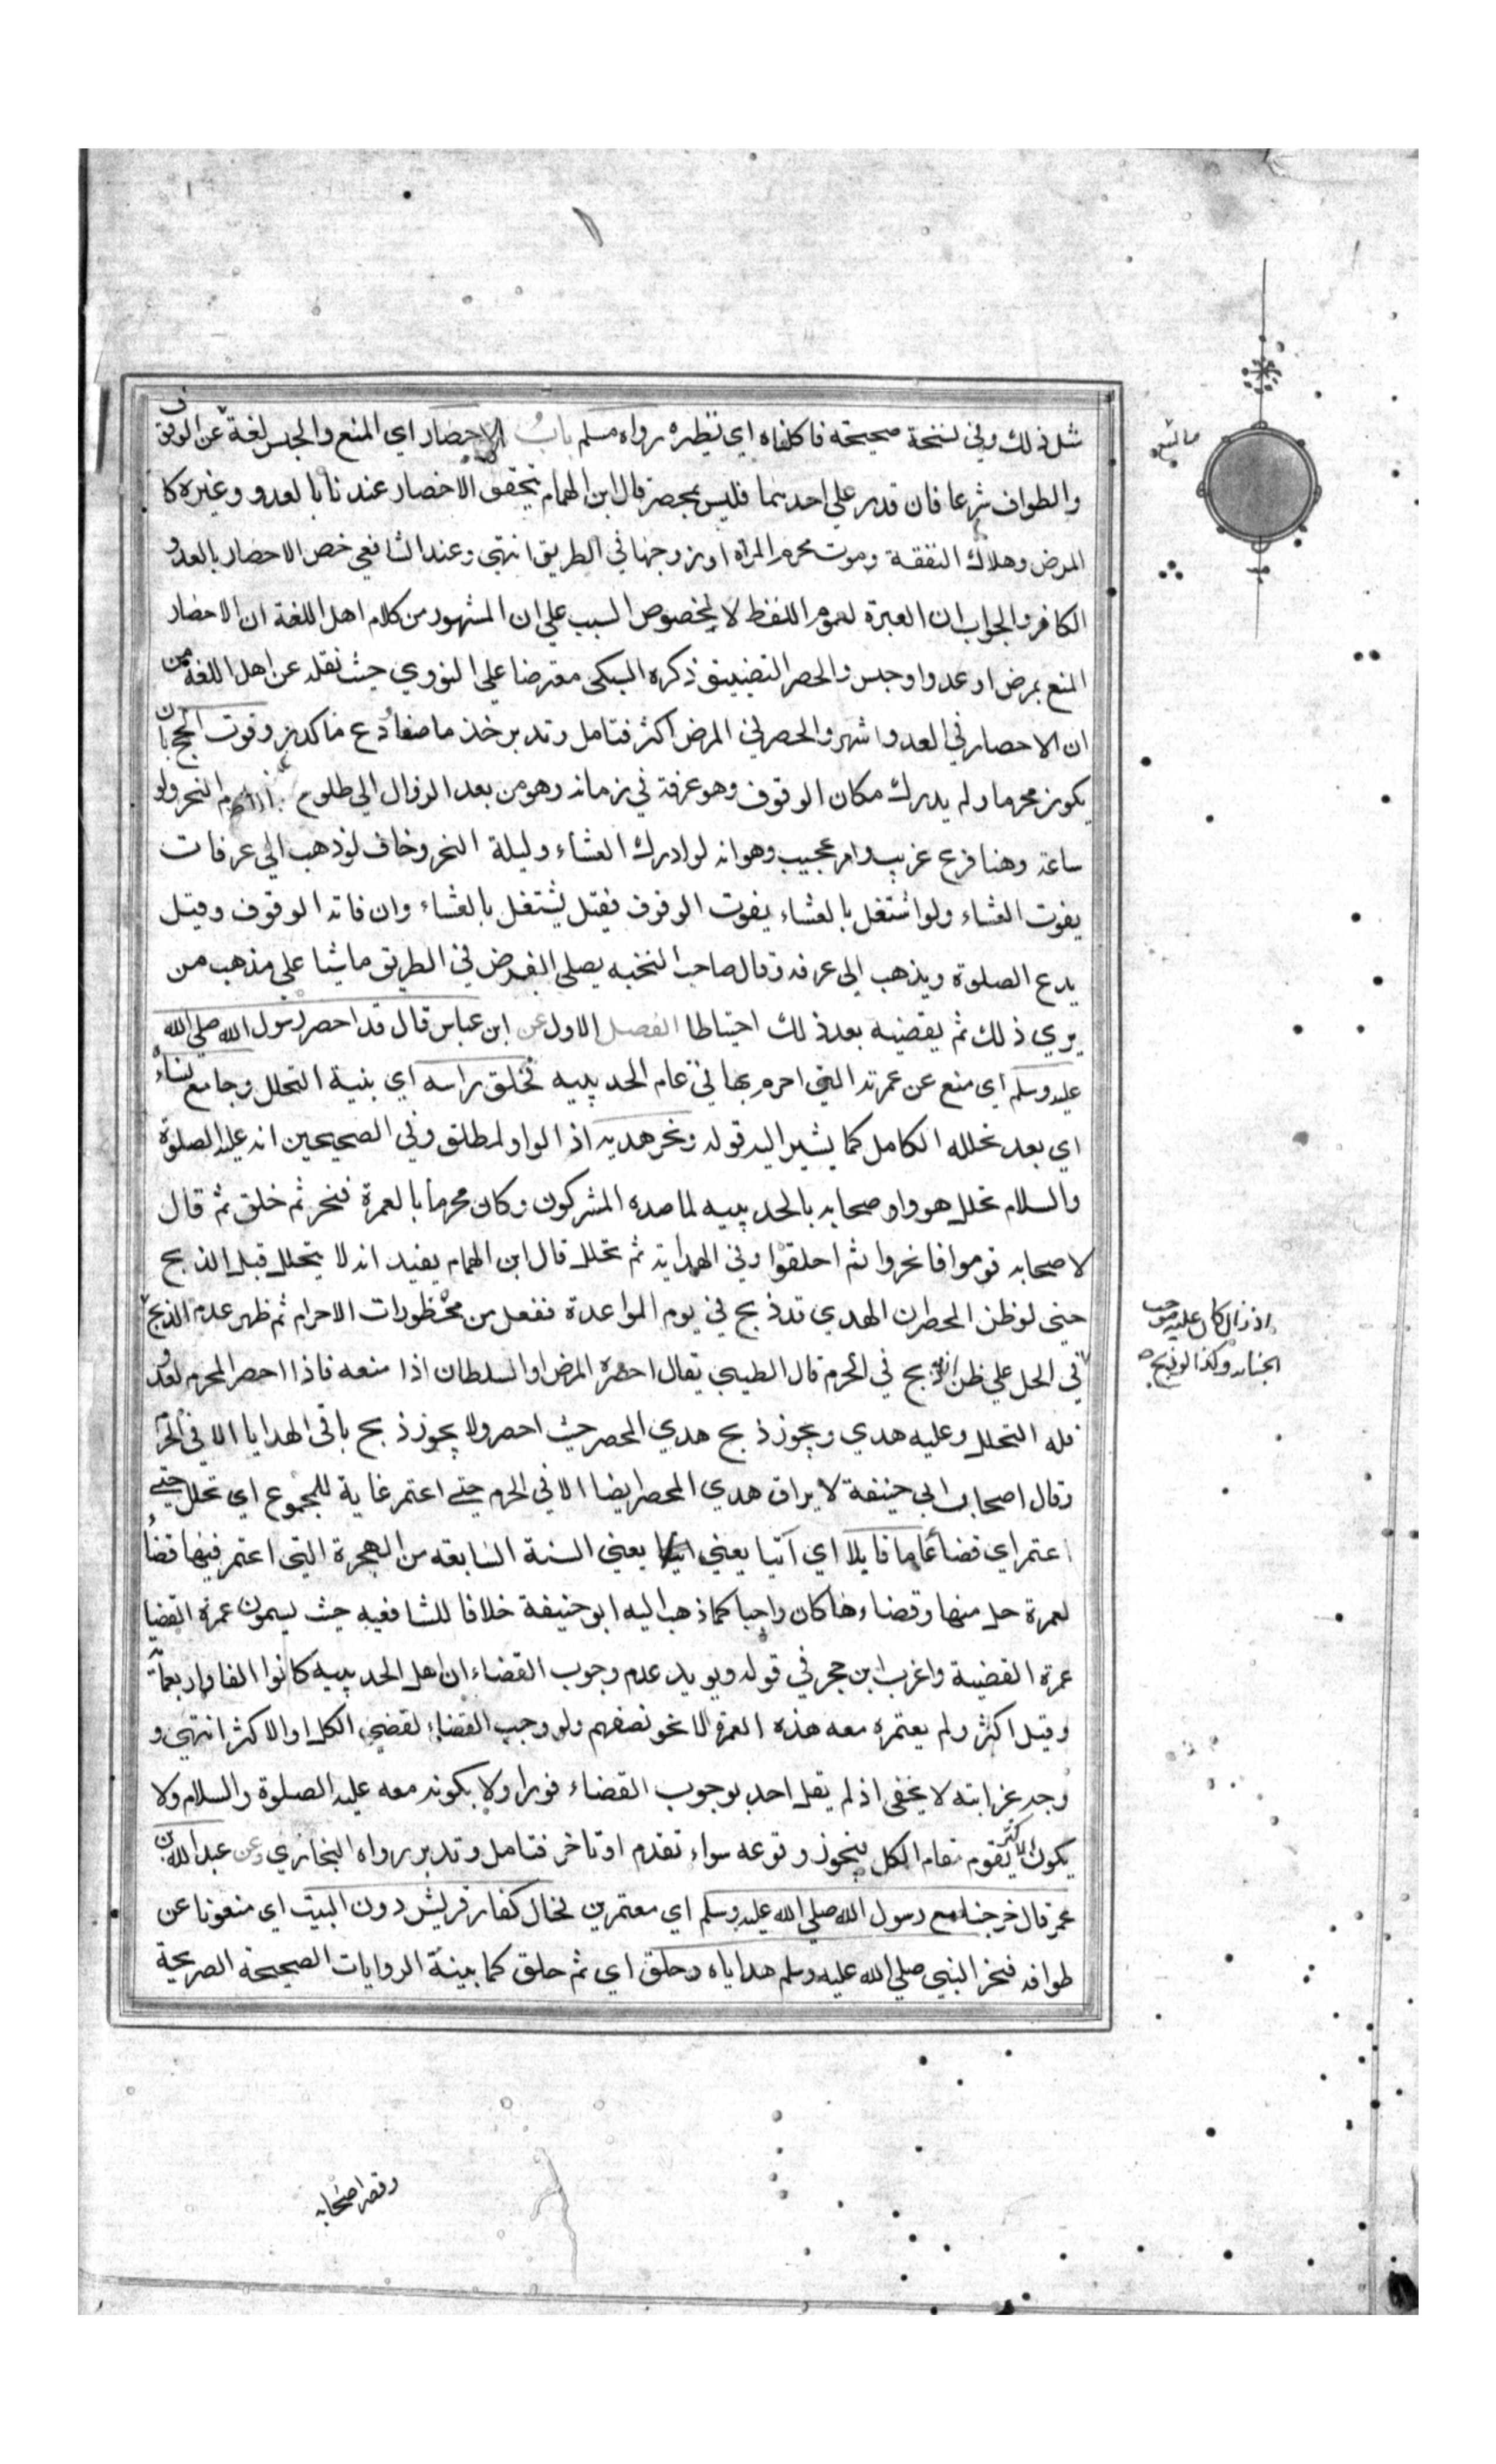 مثل ذلك وفي نسخة صحيحة فاكلناه اي نظيره رواه مسلم باب الاحصار اي المنع والحبس لغة عن الوقوف
والطواف شرعا فان قدر علي احدهما فليس بمحصر قال ابن الهمام يتحقق الاحصار عندنا بالعدو وغيره كا
المرض وهلاك النفقة وموت محرم المرأة او زوجها في الطريق انتهي وعند الشافعي خص الاحصار بالعدو
الكافر والجواب ان العبرة لعموم اللفظ لا لخصوص السبب علي ان المشهور من كلام اهل اللغة ان الاحصار
المنع بمرض او عدو او حبس والحصر التضييق ذكره السبكي معترضا علي النووي حيث نقله عن اهل اللغة من
ان الاحصار في العدو اشهر والحصر في المرض اكثر فتامل وتدبر خذ ما صفا ودع ما كدر وفوت الحج بان
يكون محرما ولم يدرك مكان الوقوف وهو عرفة في زمانه وهو من بعد الزوال الي طلوع يوم النحر ولو
ساعة وهنا فرع غريب وامر عجيب وهو انه لو ادرك العشاء وليلة النحر وخاف لو ذهب الي عرفات
يفوت العشاء ولو اشتغل بالعشاء يفوت الوقوف فقيل يشتغل بالعشاء وان فاته الوقوف وقيل
يدع الصلوة ويذهب الي عرفه وقال صاحب النخبه يصلي الفرض في الطريق ماشيا علي مذهب من
يري ذلك ثم يقضيه بعد ذلك احتياطا الفصل الاول عن ابن عباس قال قد احصر رسول الله صلي الله
عليه وسلم اي منع عن عمرته التي احرم بها في عام الحديبيه فحلق راسه اي بنية التحلل وجامع نساءه
اي بعد تحلله الكامل كما يشير اليه قوله ونحر هديه اذ الواو لمطلق وفي الصحيحين انه عليه الصلوة
والسلام تحلل هو واصحابه بالحديبيه لما صده المشركون وكان محرما بالعمرة فنحر ثم حلق ثم قال
لاصحابه قوموا فانحروا ثم احلقوا وفي الهداية ثم تحلل قال ابن الهمام يفيد انه لا يتحلل قبل الذبح
حتي لو ظن المحصر ان الهدي قد ذبح في يوم المواعدة ففعل من محظورات الاحرام ثم ظهر عدم الذبح
في الحل علي ظن انه ذبح في الحرم قال الطيبي يقال احصره المرض او السلطان اذا منعه فاذا احصر المحرم لعدو
فله التحلل وعليه هدي ويجوز ذبح هدي المحصر حيث احصر ولا يجوز ذبح باقي الهدايا الا في الحرم
وقال اصحاب ابي حنيفة لا يراق هدي المحصر ايضا الا في الحرم حتي اعتمر غاية للمجموع اي تحلل حتي
اعتمر اي قضاء عاما قابلا اي آتيا يعني السنة السابعه من الهجرة التي اعتمر فيها قضاء
لعمرة حل منها وقضاءها كان واجبا كما ذهب اليه ابو حنيفة خلافا للشافعيه حيث يسمون عمرة القضا
عمرة القضية واغرب ابن حجر في قوله ويويد عدم وجوب القضاء ان اهل الحديبيه كانوا الفا واربعمائة
وقيل اكثر ولم يعتمر معه هذه العمرة الا نحو نصفهم ولو وجب القضاء لقضي الكل او الاكثر انتهي و
وجه غرابته لا يخفي اذ لم يقل احد بوجوب القضاء فورا ولا بكونه معه عليه الصلوة والسلام ولا
يكون الاكثر يقوم مقام الكل فيجوز وقوعه سواء تقدم او تاخر فتامل وتدبر رواه البخاري وعن عبد الله بن
عمر قال خرجنا مع رسول الله صلي الله عليه وسلم اي معتمرين فحال كفار قريش دون البيت اي منعونا عن
طوافه فنحر النبي صلي الله عليه وسلم هداياه وحلق اي ثم حلق كما بينة الروايات الصحيحة الصريحة
وقصر اصحابه